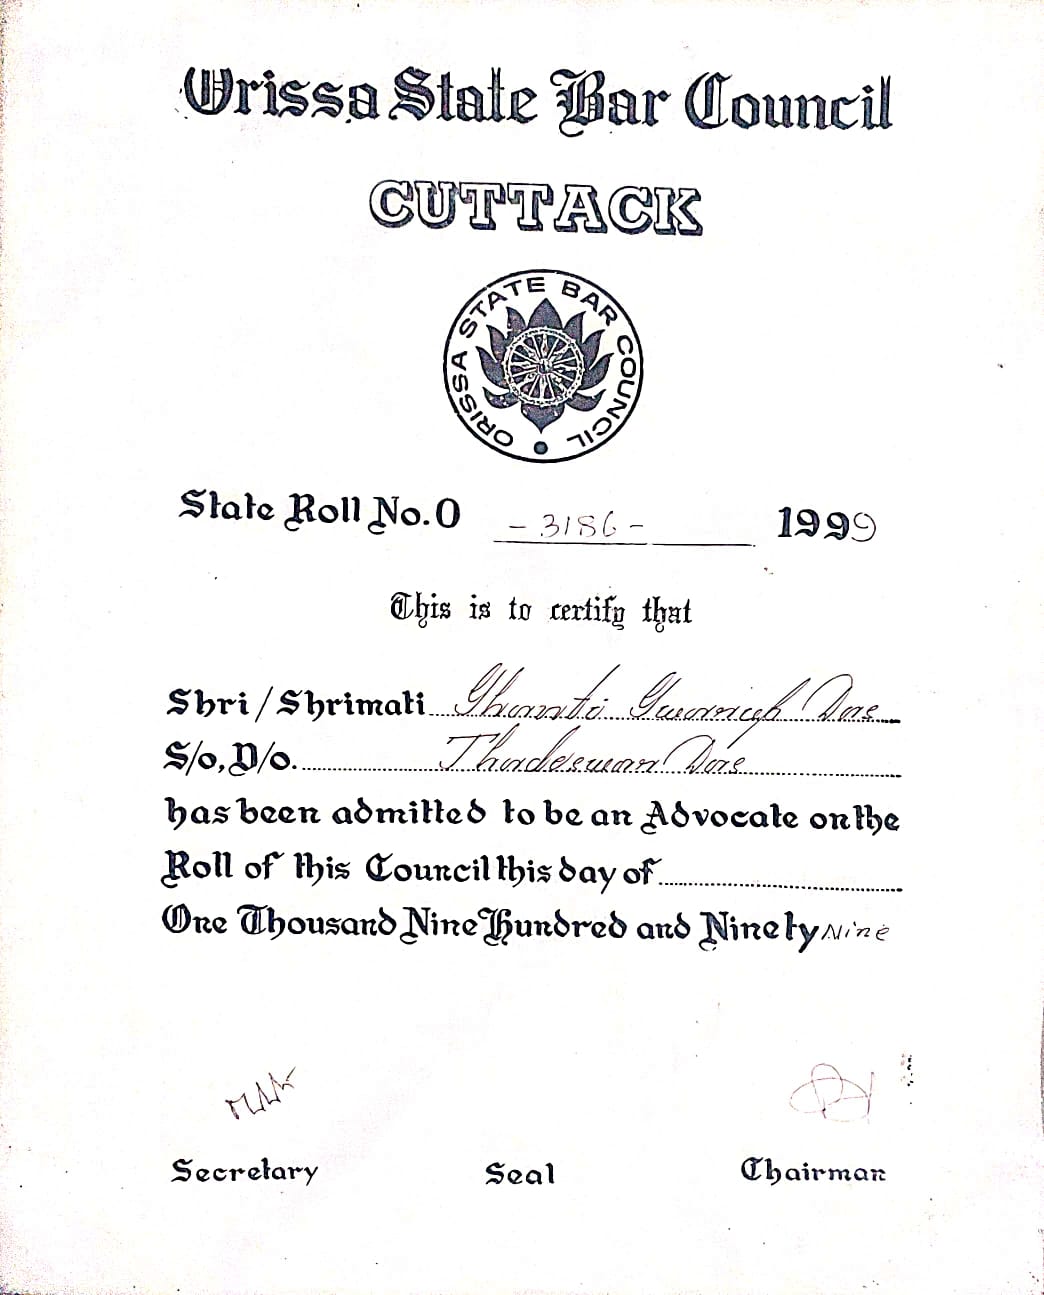 Orissa State Bar Council
CUTTACK
ORISSA STATE BAR COUNCIL
State Roll No.O - 3186 - 1999
This is to certify that
Shri/Shrimati Das
S/o,D/o. Das
has been admitted to be an Advocate on the
Roll of this Council this day of
One Thousand Nine Hundred and Ninety Nine
Secretary Seal Chairman